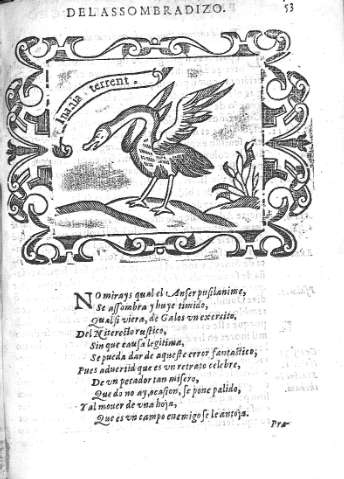 DEL ASSOMBRADIZO. 53
Inania terrent.
No mirays qual el Anser pusilanime,
Se assombra y huye timido,
Qual si viera, de Galos vn exercito.
Del rustico,
Sin que causa legitima,
Se pueda dar de aqueste error fantastico;
Pues aduertid que es vn retrato celebre,
De vn pecador tan misero,
Que do no ay, ocasion, se pone palido,
Y al mouer de vna hoja,
Que es vn campo enemigo se le antoja.
Pra-